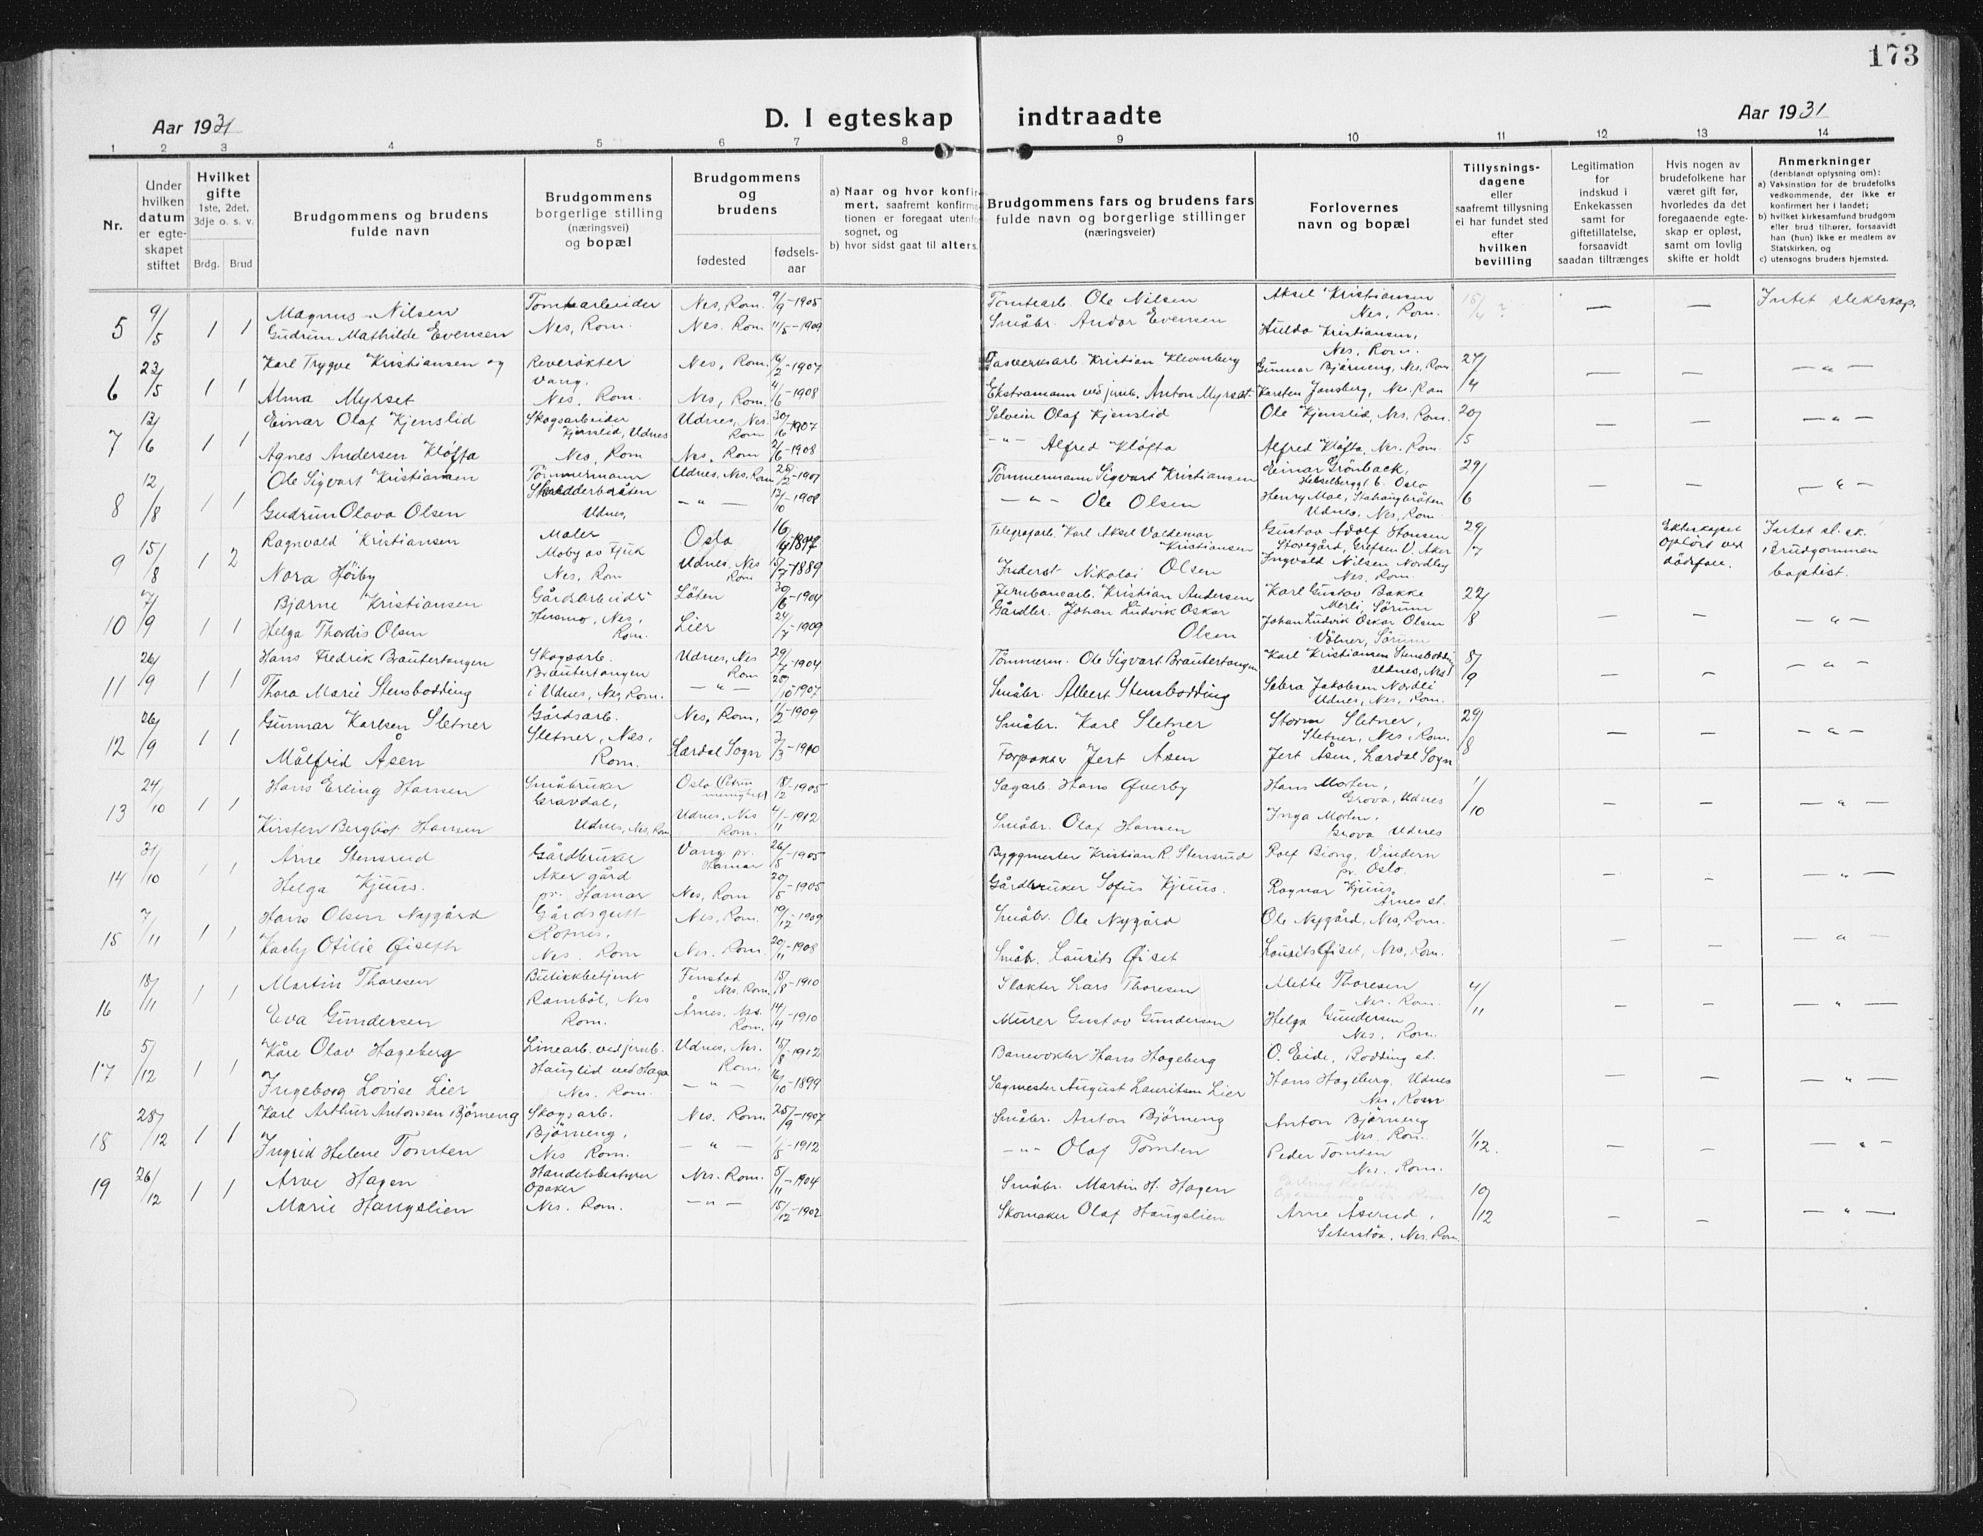 173
Aar 1931
D. I egteskap indtraadte
Aar 1931
1 2 3 4 5 6 7 8 9 10 11 12 13 14
Nr.
Under hvilken datum er egteskapet stiftet
Hvilket gifte 1ste, 2det, 3dje o. s. v.
Brdg. Brud
Brudgommens og brudens fulde navn
Brudgommens borgerlige stilling (næringsvei) og bopæl
Brudgommens og brudens
fødested
fødsels-aar
a) Naar og hvor konfirmert, saafremt konfirmationen er foregaat utenfor sognet, og
b) hvor sidst gaat til alters.
Brudgommens fars og brudens fars fulde navn og borgerlige stillinger (næringsveier)
Forlovernes navn og bopæl
Tillysningsdagene eller saafremt tillysning ei har fundet sted efter hvilken bevilling
Legitimation for indskud i Enkekassen samt for giftetillatelse, forsaavidt saadan tiltrænges
Hvis nogen av brudefolkene har været gift før, hvorledes da det foregaaende egteskap er opløst, samt om lovlig skifte er holdt
Anmerkninger (deriblandt oplysning om):
a) Vaksination for de brudefolks vedkommende, der ikke er konfirmert her i landet;
b) hvilket kirkesamfund brudgom eller brud tilhører, forsaavidt han (hun) ikke er medlem av Statskirken, og
c) utensogns bruders hjemsted.
5 9/5 1 1 Magnus Nilsen Tomtearbeider Nes, Rom. 9/9-1905 Tomtearb. Ole Nilsen Aksel Kristiansen Nes, Rom. Intet slektskap.
Gudrun Mathilde Evensen Nes, Rom. Nes. Rom 11/5-1909 Småbr. Andor Evensen Hulda Kristiansen, Nes, Rom.
6 23/5 1 1 Karl Trygve Kristiansen og Reverøkter Vang. Nes, Rom. 16/2-1907 Gasverksarb. Kristian Klevenberg Gunnar Bjørneng, Nes, Rom 27/4
Alma Myrset Nes, Rom. Nes, Rom. 4/6-1908 Ekstramann ved jernb. Anton Myrset. Karsten Jansberg, Nes, Rom
7 13/6 1 1 Einar Olaf Kjenslid Skogsarbeider Kjenslid, Udnes Udnes, Nes. Rom 30/16-1907 Selveier Olaf Kjenslid Ole Kjenslid, Nes, Rom. 20/5
Agnes Andersen Kløfta Nes, Rom Nes, Rom 2/6-1908 Alfred Kløfta Alfred Kløfta, Nes, Rom.
8 12/8 1 1 Ole Sigvart Kristiansen Tømmermann Udnes, Nes, Rom 28/2-1907 Tømmermann Sigvart Kristiansen Einar Grönback, Oslo 29/6
Gudrun Olava Olsen Udnes, 12/10-1908 Ole Olsen Henry Moe, Udnes, Nes, Rom
9 15/8 1 2 Ragnvald Kristiansen Maler Oslo 16/4-1897 Telegrafarb. Karl Aksel Valdemar Kristiansen Gustav Adolf Hansen Storegård, Grefsen V. Aker 29/7 Ekteskapet opløst ved dödsfall. Intet sl.sk. Brudgommen baptist.
Nora Høiby Moby as Fjuk Nes, Rom Udnes, Nes Rom 15/7-1889 Inderst Nikolai Olsen Ingvald Nilsen Nordby Nes, Rom.
10 7/9 1 1 Bjarne Kristiansen Gårdsarbeider Løten 30/6-1904 Jernbanearb. Kristian Andersen Karl Gustav Bakke Merli, Sørum 22/8
Helga Thordis Olsen Hersmo, Nes, Rom. Lier 24/7-1909 Gårdbr. Johan Ludvik Oskar Olsen Johan Ludvik Oskar Olsen Völner, Sørum
11 26/9 1 1 Hans Fredrik Bråutertangen Skogsarb. Bråutertangen Udnes, Nes Rom 29/4-1904 Tömmerm. Ole Sigvart Bråutertangen Karl Kristiansen Stensbodding Udnes, Nes 8/9
Thora Marie Stensbodding i Udnes, Nes, Rom. 20/10-1907 Småbr. Albert Stensbodding Sebra Jakobsen Nordli Udnes, Nes, Rom.
12 26/9 1 1 Gunnar Karlsen Sletner Gårdsarb. Nes, Rom, 11/2-1909 Småbr. Karl Sletner Storm Sletner, Sletner, Nes, Rom. 29/8
Målfrid Åsen Sletner, Nes, Rom. Lærdal Sogn 3/3-1910 Forpakter Jert Åsen Jert Åsen, Lærdal Sogn
13 24/10 1 1 Hans Erling Hansen Småbruker Gravdal, Oslo (Petrus menighet) 8/12-1905 Sagarb. Hans Qverby Hans Morten, Grova, Udnes 1/10
Kirsten Bergliot Hansen Udnes, Nes, Rom Udnes, Nes Rom. 4/11-1912 Småbr. Olaf Hansen Inga Morten, Grova Udnes
14 31/10 1 1 Arne Stensrud Gårdbruker Vang pr. Hamar 26/8-1905 Byggmester Kristian R. Stensrud Rolf Biong, Vindern pr. Oslo
Helga Kjuus. Aker gård pr. Hamar Nes, Rom 20/5-1905 Gårdbruker Sofus Kjuus. Ragnar Kjuus, Arnes st.
15 7/11 1 1 Hans Olsen Nygård Gårdsgutt Nes, Rom. 19/12-1909 Småbr. Ole Nygård Ole Nygård, Nes, Rom.
Otilie Øiseth Nes. Rom Nes. Rom. 20/11-1908 Småbr. Laurits Øiset Laurits Øiset, Nes, Rom.
16 18/11 1 1 Martin Thoresen Butikkbetjent Fenstad Nes, Rom. 15/8-1910 Slakter Lars Thoresen Mette Thoresen Nes. Rom. 4/11
Eva Gundersen Rambøl, Nes Rom. Årnes, Nes. Rom. 14/4-1910 Murer Gustav Gundersen Helga Gundersen Nes, Rom.
17 5/12 1 1 Kåre Olav Hageberg Linearb. ved jernb. Udnes, Nes. Rom. 15/8-1912 Banevokter Hans Hageberg O. Eide, Rodding st.
Ingeborg Lovise Lier Hauglid ved Haga Nes. Rom. 16/10-1899 Sagmester August Lauritsen Lier Hans Hageberg Udnes Nes, Rom
18 25/12 1 1 Karl Arthur Antonsen Bjørneng Skogsarb. Nes. Rom 25/9-1907 Småbr. Anton Bjørneng Anton Bjørneng Nes. Rom. 1/12.
Ingrid Helene Tomten Bjørneng, Nes Rom. 1/5-1912 Olaf Tomten Peder Tomten Nes. Rom.
19 26/12 1 1 Arve Hagen Handelsbestyrer Opaker Nes. Rom. 5/11-1904 Småbr. Martin H. Hagen 10/12
Marie Haugslien Nes. Rom. 15/12-1902 Skomaker Olaf Haugslien Arne Åsrud, Seterstøa, Nes. Rom.